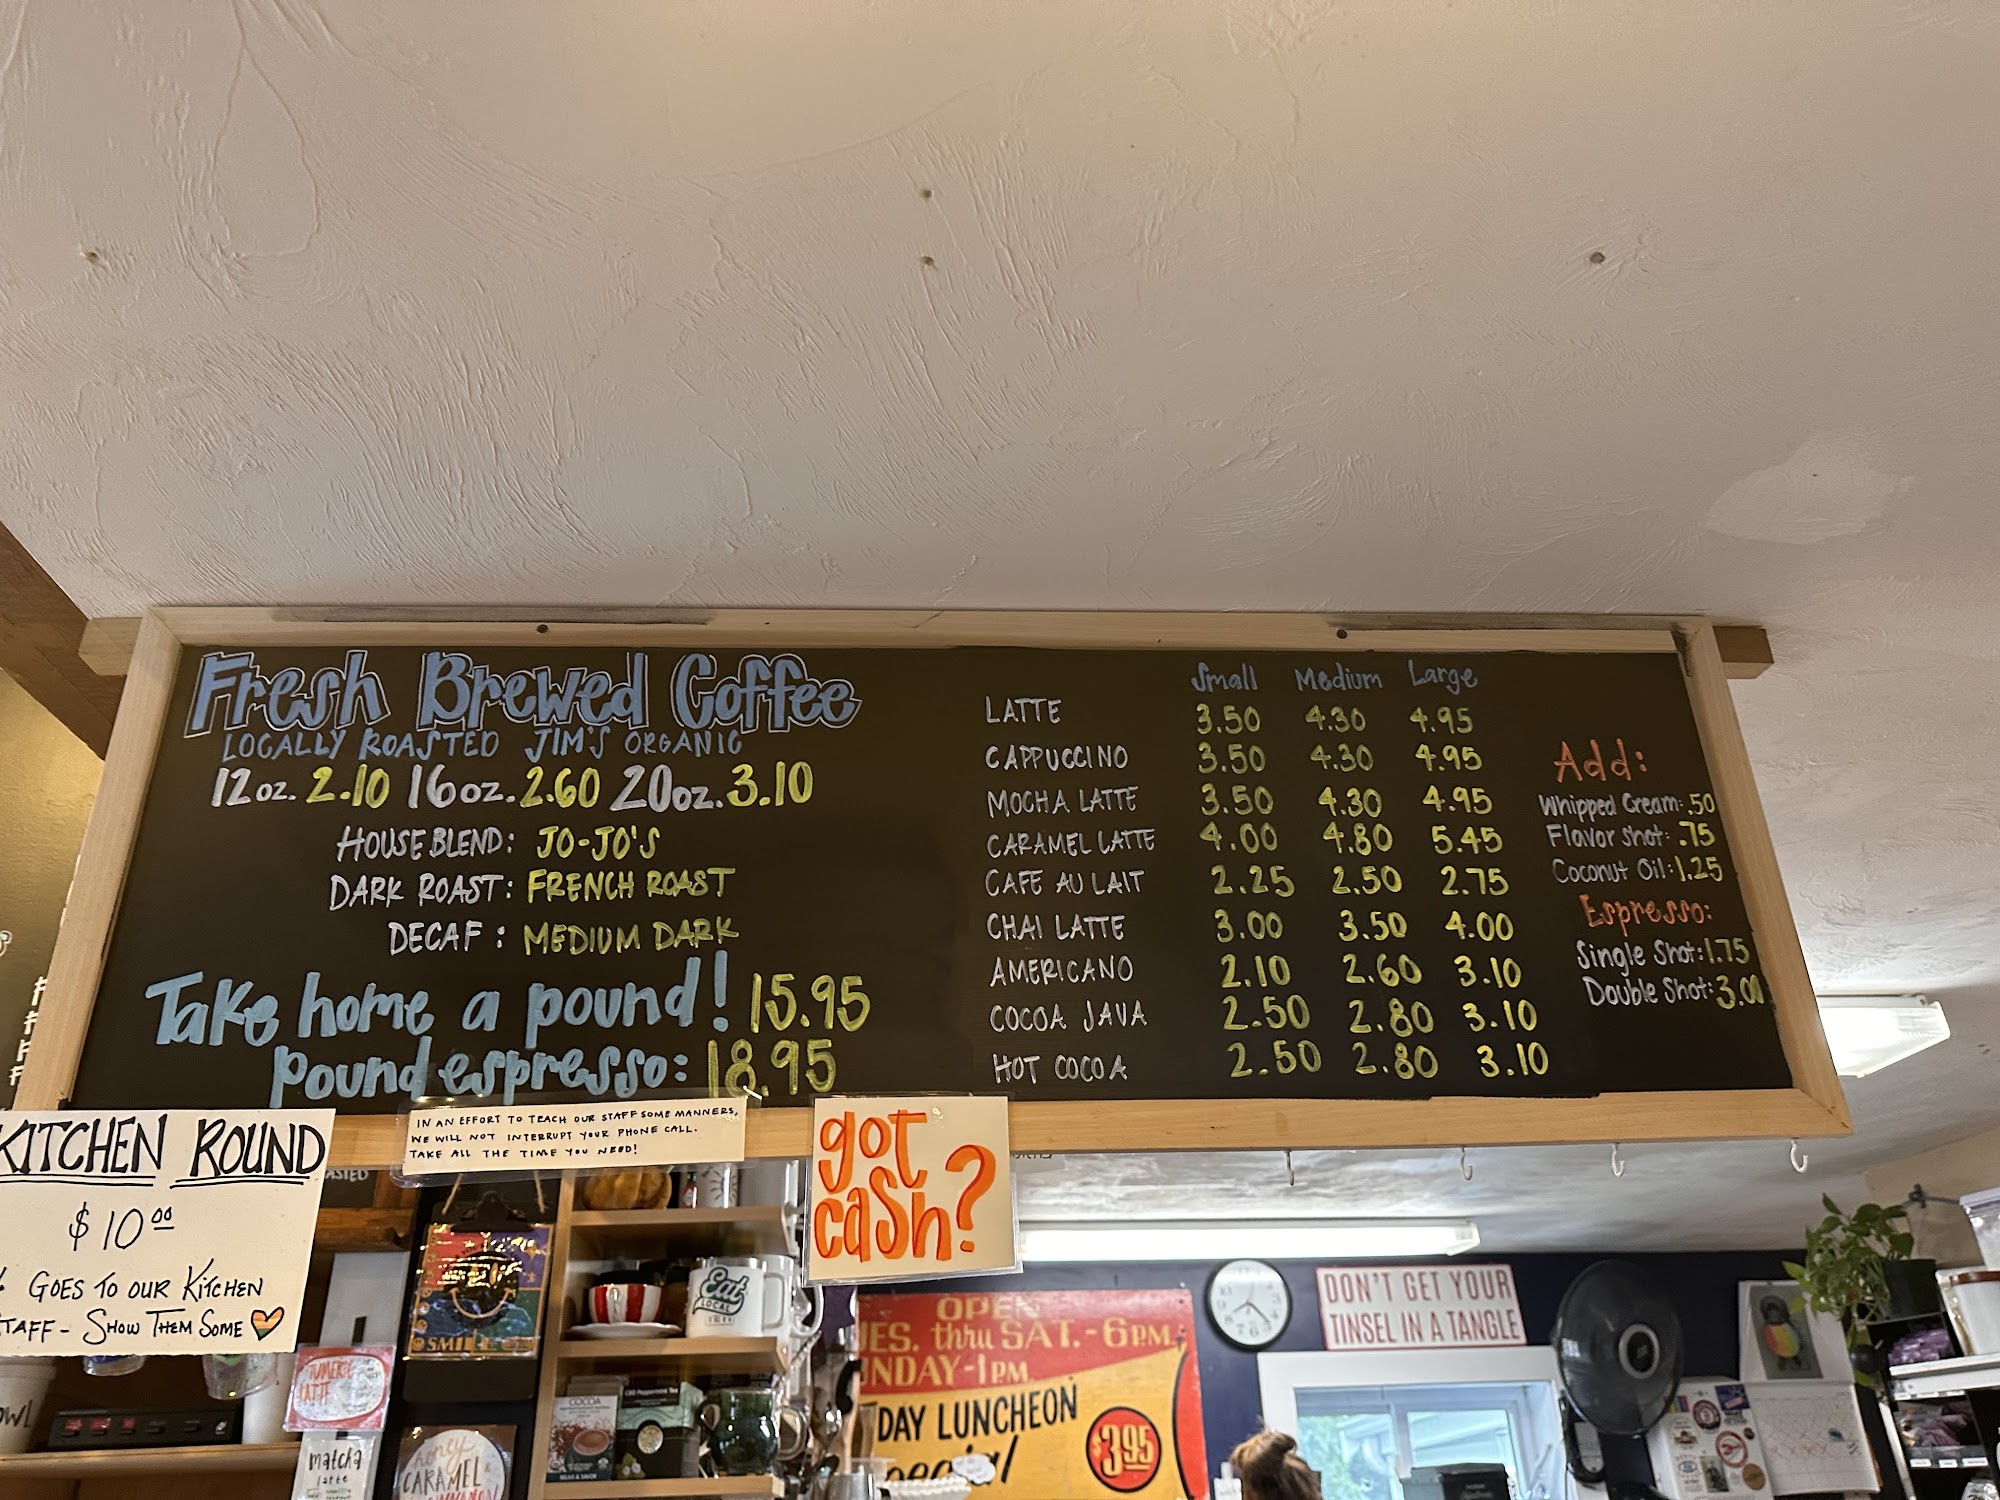 Fresh Brewed Coffee
LOCALLY ROASTED JIM'S ORGANIC
12oz. 2.10 16oz. 2.60 20oz. 3.10
HOUSE BLEND: JO-JO'S
DARK ROAST: FRENCH ROAST
DECAF: MEDIUM DARK
Take home a pound! 15.95
pound espresso: 18.95
Small Medium Large
LATTE 3.50 4.30 4.95
CAPPUCCINO 3.50 4.30 4.95
MOCHA LATTE 3.50 4.30 4.95
CARAMEL LATTE 4.00 4.80 5.45
CAFE AU LAIT 2.25 2.50 2.75
CHAI LATTE 3.00 3.50 4.00
AMERICANO 2.10 2.60 3.10
COCOA JAVA 2.50 2.80 3.10
HOT COCOA 2.50 2.80 3.10
Add:
Whipped Cream: .50
Flavor Shot: .75
Coconut Oil: 1.25
Espresso:
Single Shot: 1.75
Double Shot: 3.00
KITCHEN ROUND
$10.00
GOES TO OUR KITCHEN
STAFF - SHOW THEM SOME
IN AN EFFORT TO TEACH OUR STAFF SOME MANNERS,
WE WILL NOT INTERRUPT YOUR PHONE CALL.
TAKE ALL THE TIME YOU NEED!
got
cash?
SMILE
Eat
LOCAL
COCOA
CBD Peppermint Tea
TUMERIC
LATTE
matcha
latte
honey
CARAMEL
OPEN
TUES. thru SAT. - 6 P.M.
SUNDAY - 1 P.M.
DAY LUNCHEON
Special
$3.95
DON'T GET YOUR
TINSEL IN A TANGLE